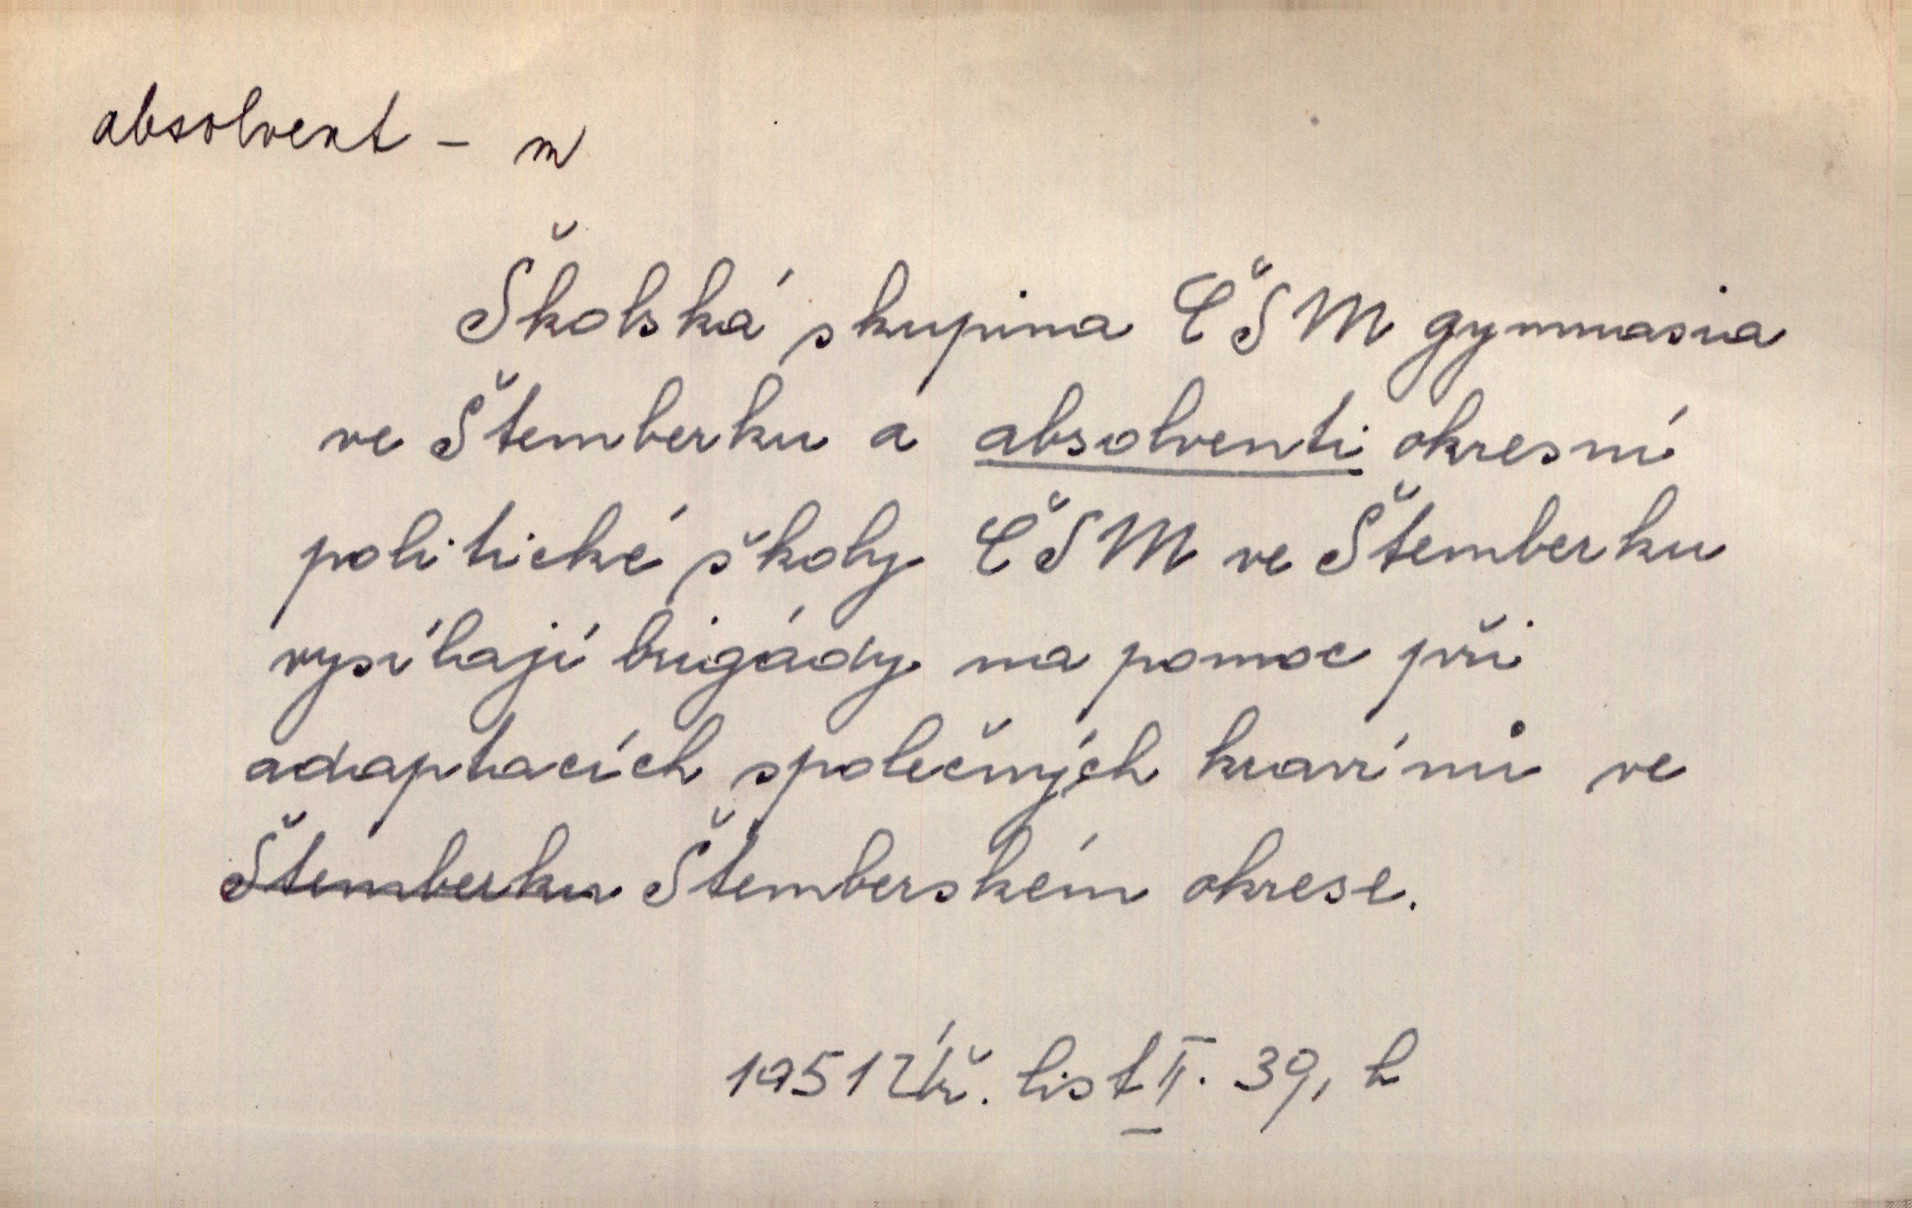 absolvent - m
Školská skupina ČSM gymnasia
ve Štemberku a absolventi okresní
politické školy ČSM ve Štemberku
vysílají brigády na pomoc při
adaptacích společných kravínů ve
Štemberku Štemberském okrese.
1951 Úř. list II. 39, h